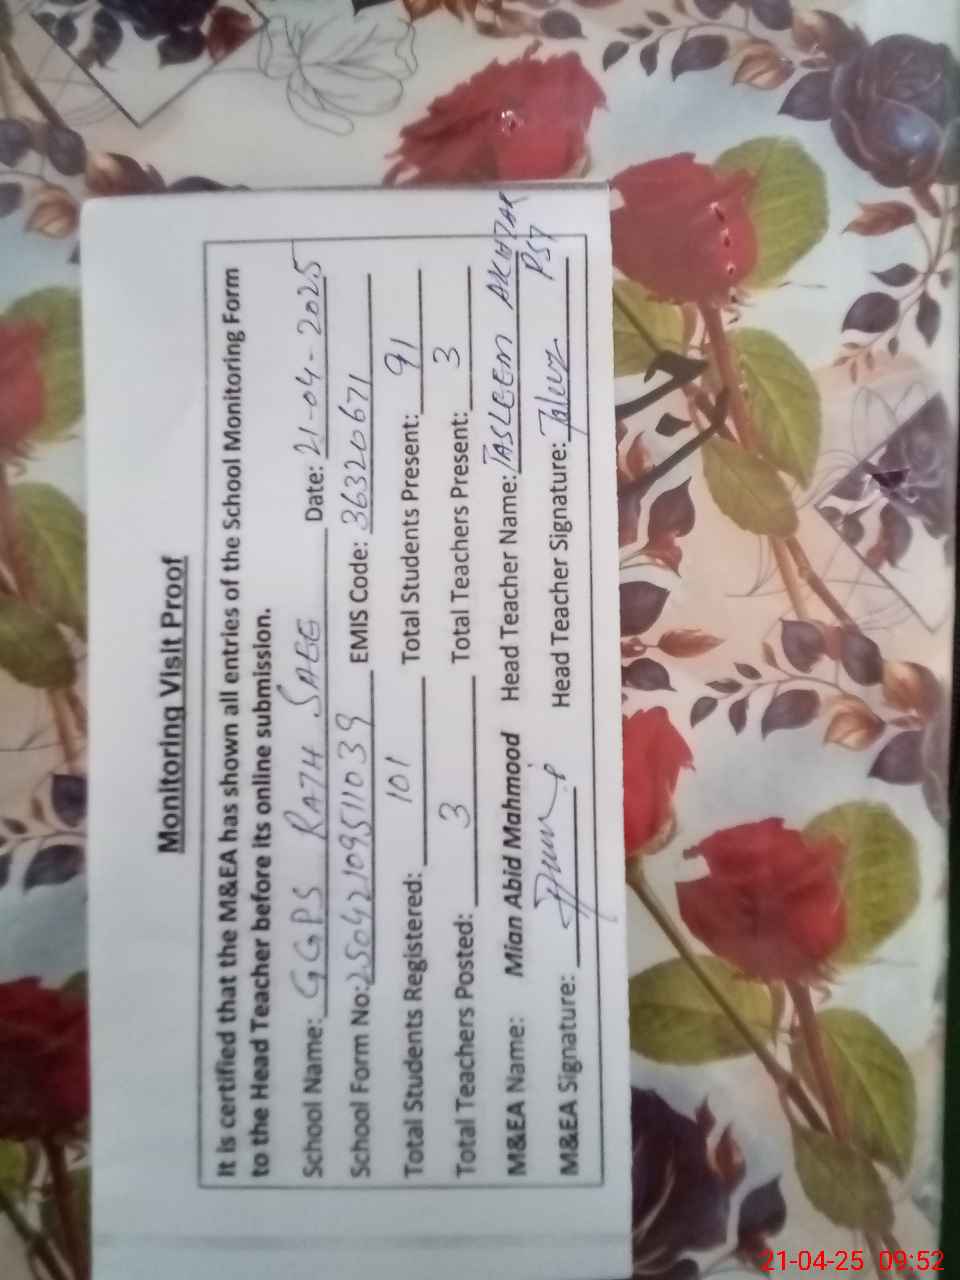 Monitoring Visit Proof
It is certified that the M&EA has shown all entries of the School Monitoring Form
to the Head Teacher before its online submission.
School Name: GGPS RATH SAEG Date: 21-04-2025
School Form No: 25042109511039 EMIS Code: 36320671
Total Students Registered: 101 Total Students Present: 91
Total Teachers Posted: 3 Total Teachers Present: 3
M&EA Name: Mian Abid Mahmood Head Teacher Name: TASLEEM AKHTAR
M&EA Signature: Head Teacher Signature: PST
21-04-25 09:52